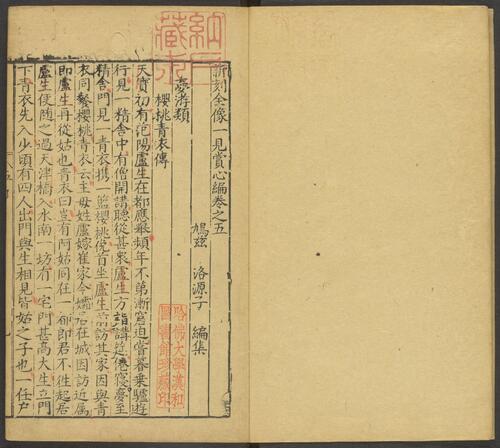 新刻全像一見賞心編卷之五
鳩茲 洛源子 編集
夢游類
櫻桃青衣傳
天寶初有范陽盧生在都應舉頻年不第漸窘迫嘗暮乗驢遊
行見一精舍中有僧開講聽從甚衆盧生方詣講筵倦寢夢至
精舍門見一青衣携一籃櫻桃
坐盧生
訪其家因與青
衣同飡櫻桃青衣云主母姓盧嫁崔家今孀居在城因訪近属
即盧生再從姑也青衣曰豈有阿姑同在一都郎君不徃起居
盧生便随之過天津橋入水南一坊有一宅門甚高大生立門
下青衣先入少頃有四人出門與生相見皆姑之子也一任户
哈佛大學漢和圖書館珍藏印